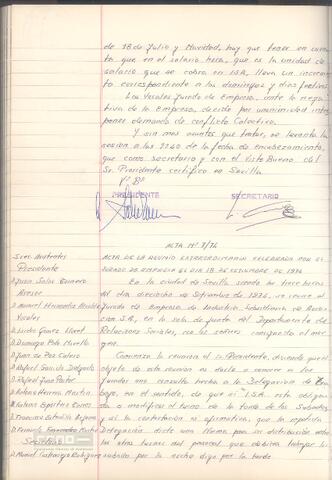 de 18 de Julio y Navidad, hay que tener en cuen-
ta que en el salario hora, que es la unidad de
salario que se cobra en ISA, lleva un incremen-
to correspondiente a los domingos y dias festivos.
Los Vocales Jurado de Empresa, ante la nega-
tiva de la Empresa, decide por unanimidad inter-
poner demanda de conflicto Colectivo.
Y sin mas asuntos que tratar, se levanta la
sesión a las de la fecha de encabezamiento,
que como secretario y con el Visto Bueno del
Sr. Presidente certifico en Sevilla
Vº Bº
PRESIDENTE SECRETARIO
ACTA Nº 7/76
Sres. Asistentes
Presidente
D. Juan Salas
Asesor
D. Manuel Hernandez
Vocales
D. Lucho
D. Domingo Polo Murillo
D. Juan de Paz Calero
D. Rafael Garrido Delgado
D. Rafael Pastor
D. Antonio Herrera Martin
D. Antonio Espertos
D. Francisco
D. Fernando Fernandez
Secretario
D. Manuel Rodriguez
ACTA DE LA REUNIO EXTRAORDINARIA CELEBRADA POR EL
JURADO DE EMPRESA EL DIA 18 DE SETIEMBRE DE 1976
En la ciudad de Sevilla siendo las trece horas
del dia dieciocho de Setiembre de 1976, se reune el
Jurado de Empresa de Industria Subsidiaria de Aviación
S.A., en la sala de junta del Departamento de
Relaciones Sociales, con los señores consignados al mar-
gen.
Comienza la reunión el Sr. Presidente, diciendo que el
objeto de esta reunión es darle a conocer a los
Jurados una consulta hecha a la Delegación de Tra-
bajo, en el sentido, de que si I.S.A. esta obliga-
da a modificar el turno de la tarde de los Sabados,
y si la contestación es afirmativa, que la repetida
Delegación dicte una norma para su distribución entre
las otras horas del personal que debiera trabajar los
sabados por la noche digo por la tarde